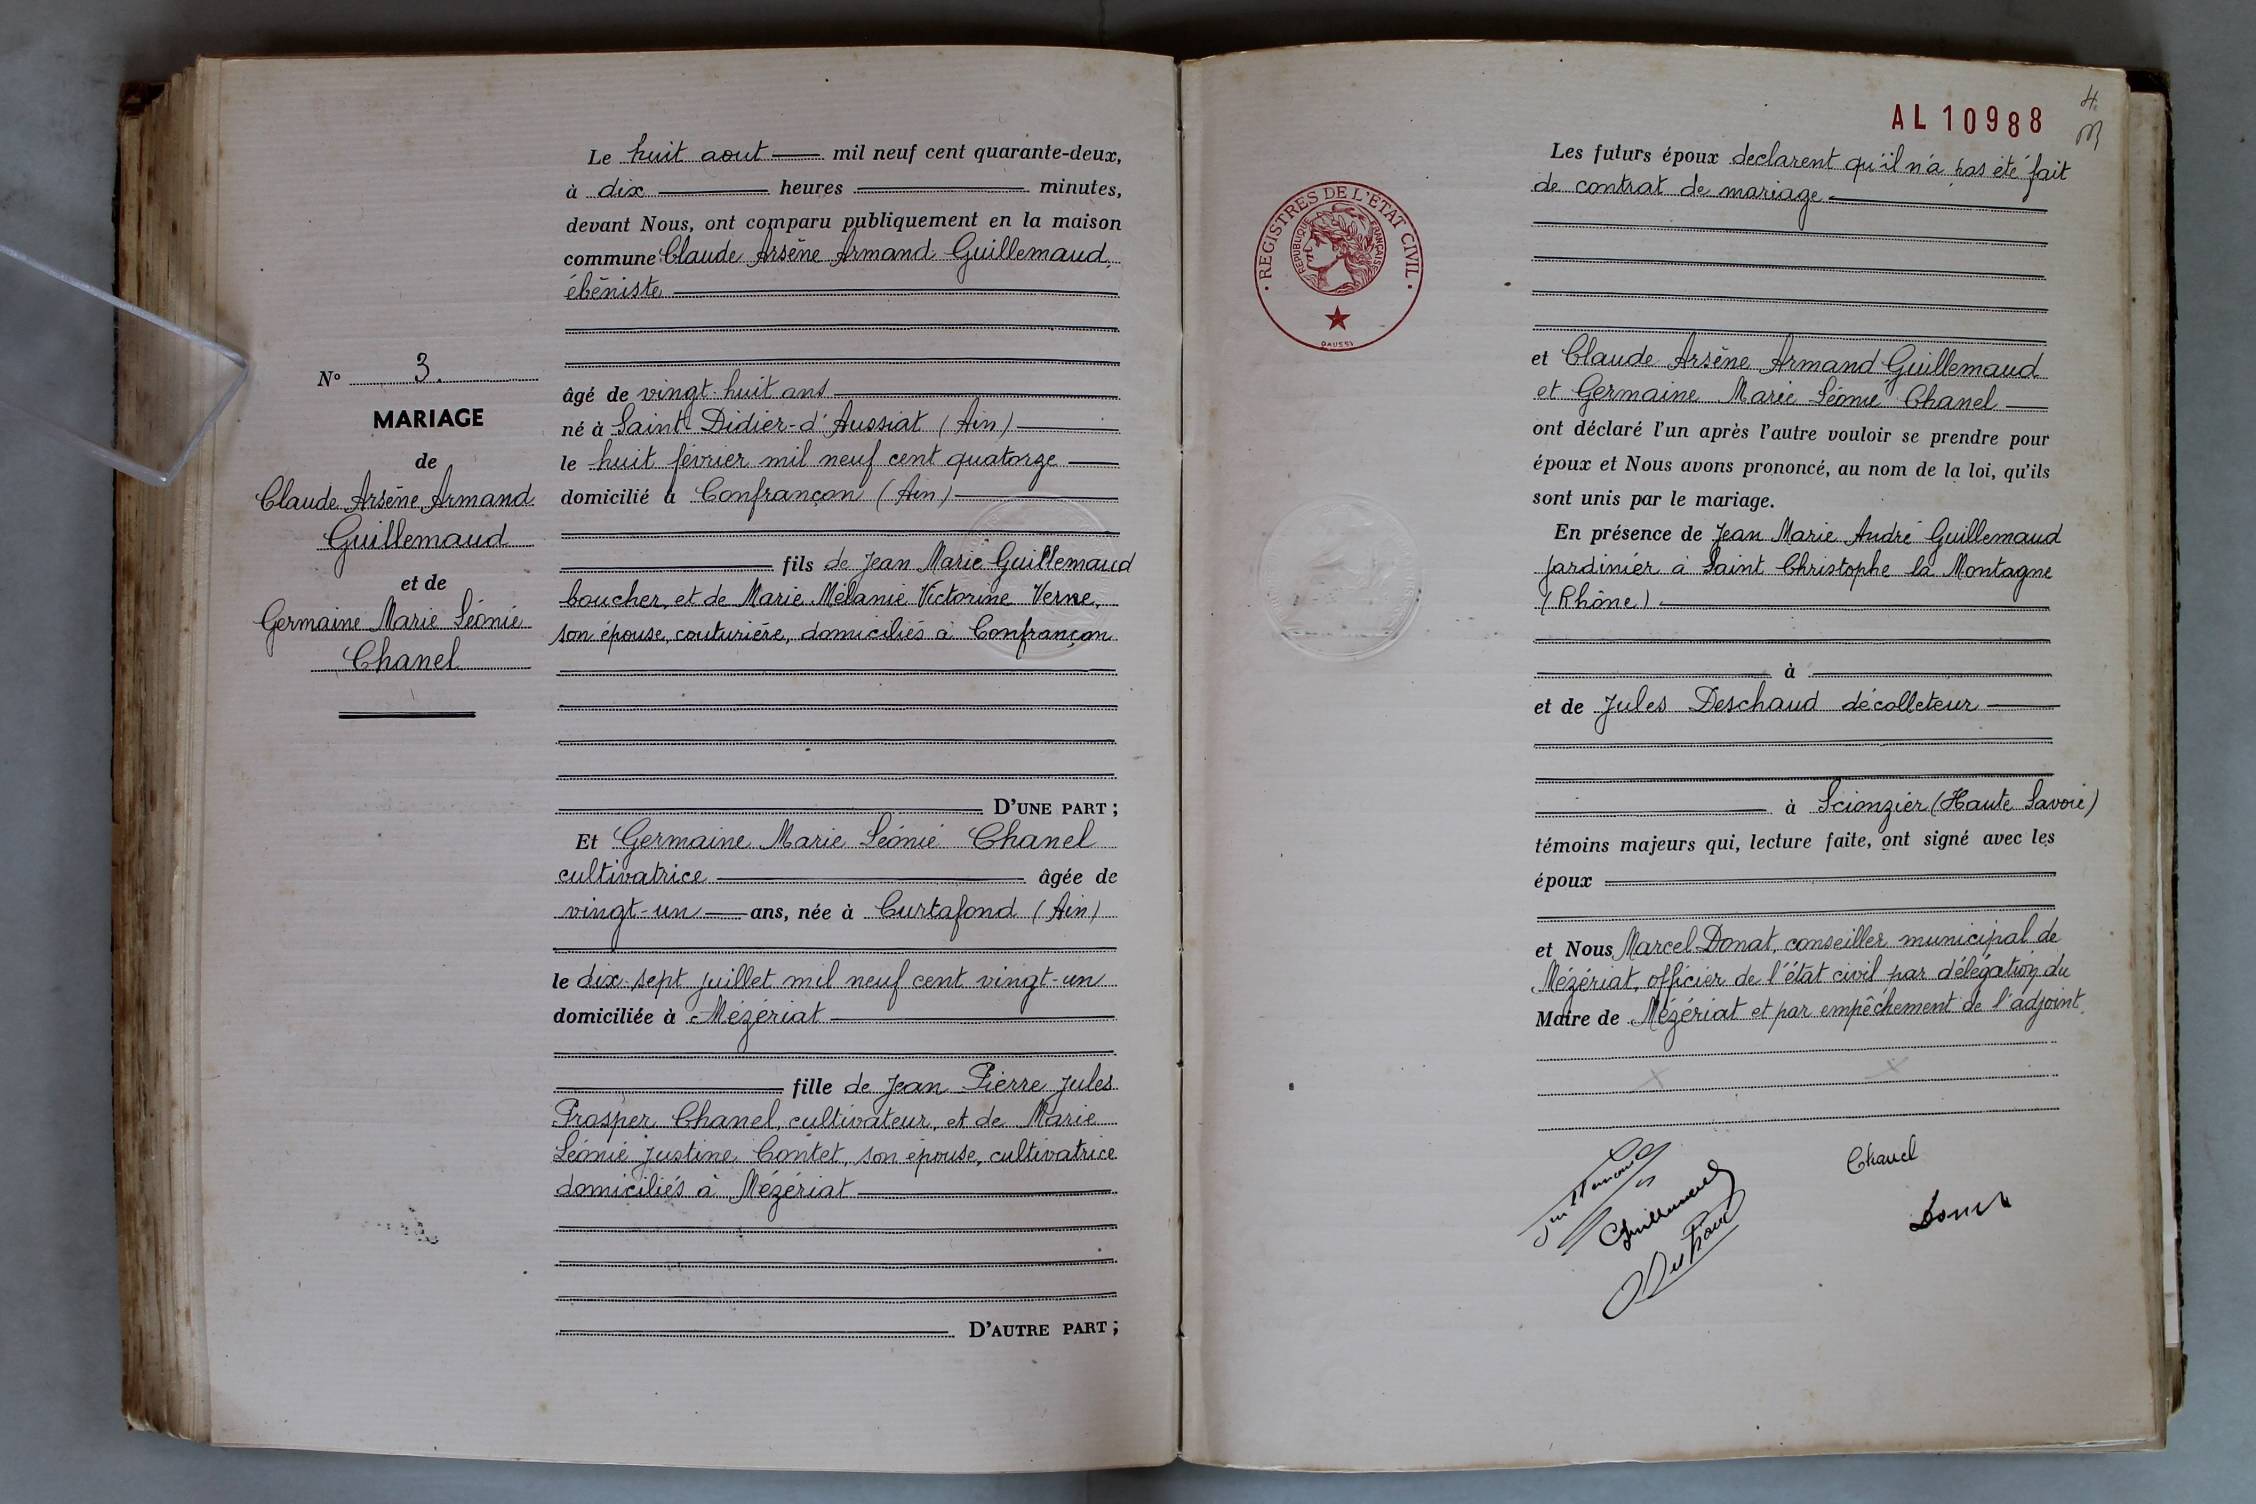 N° 3.
MARIAGE
de
Claude Arsène Armand
Guillemaud
et de
Germaine Marie Léonie
Chanel
Le huit aout mil neuf cent quarante-deux,
à dix heures minutes,
devant Nous, ont comparu publiquement en la maison
commune Claude Arsène Armand Guillemaud,
ébéniste
âgé de vingt-huit ans
né à Saint-Didier-d'Aussiat (Ain)
le huit février mil neuf cent quatorze
domicilié à Confrançon (Ain)
fils de Jean Marie Guillemaud
boucher, et de Marie Mélanie Victorine Verne,
son épouse, couturière, domiciliés à Confrançon
D'UNE PART ;
Et Germaine Marie Léonie Chanel
cultivatrice âgée de
vingt-un ans, née à Curtafond (Ain)
le dix-sept juillet mil neuf cent vingt-un
domiciliée à Mézériat
fille de Jean Pierre Jules
Prosper Chanel, cultivateur, et de Marie
Léonie Justine Contet, son épouse, cultivatrice
domiciliés à Mézériat
D'AUTRE PART ;
4.
AL 10988
REGISTRES DE L'ETAT CIVIL
REPUBLIQUE FRANÇAISE
DAUSSY
Les futurs époux declarent qu'il n'a pas été fait
de contrat de mariage
et Claude Arsène Armand Guillemaud
et Germaine Marie Léonie Chanel
ont déclaré l'un après l'autre vouloir se prendre pour
époux et Nous avons prononcé, au nom de la loi, qu'ils
sont unis par le mariage.
En présence de Jean Marie André Guillemaud
jardinier à Saint Christophe la Montagne
(Rhône)
à
et de Jules Deschaud décolleteur
à Scionzier (Haute Savoie)
témoins majeurs qui, lecture faite, ont signé avec les
époux
et Nous Marcel Donat, conseiller municipal de
Mézériat, officier de l'état civil par délégation du
Maire de Mézériat et par empêchement de l'adjoint.
Chanel
Guillemaud
Donat